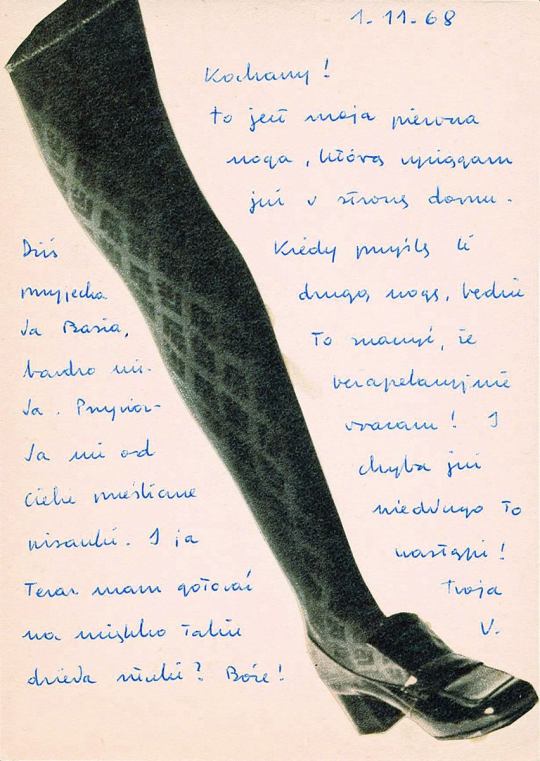 1-11-68
Kochany!
to jest moja pierwsza
noga, którą wyciągam
już w stronę domu.
Kiedy przyślę Ci
drugą nogę, będzie
To znaczyć, że
bezapelacyjnie
wracam! I
chyba już
niedługo to
nastąpi!
Twoja
W.
Dziś
przyjecha
ła Basia,
bardzo mi-
ła. Przynio-
sła mi od
Ciebie prześliczne
pisanki. I ja
Teraz mam gotować
na miękko takie
dzieła sztuki? Boże!